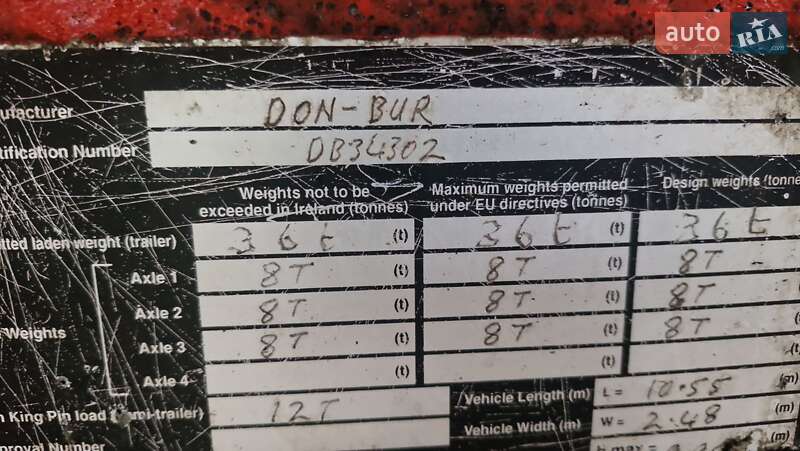 auto RIA .com
ufacturer DON-BUR
tification Number DB34302
Weights not to be exceeded in Ireland (tonnes)
Maximum weights permitted under EU directives (tonnes)
Design weights (tonne
tted laden weight (trailer) 36t (t) 36t (t) 36t
Axle 1 8T (t) 8T (t) 8T
Axle 2 8T (t) 8T (t) 8T
Weights
Axle 3 8T (t) 8T (t) 8T
Axle 4 (t) (t)
King Pin load (semi-trailer) 12T
Vehicle Length (m) L = 10.55 (m)
Vehicle Width (m) W = 2.48 (m)
proval Number
(m)